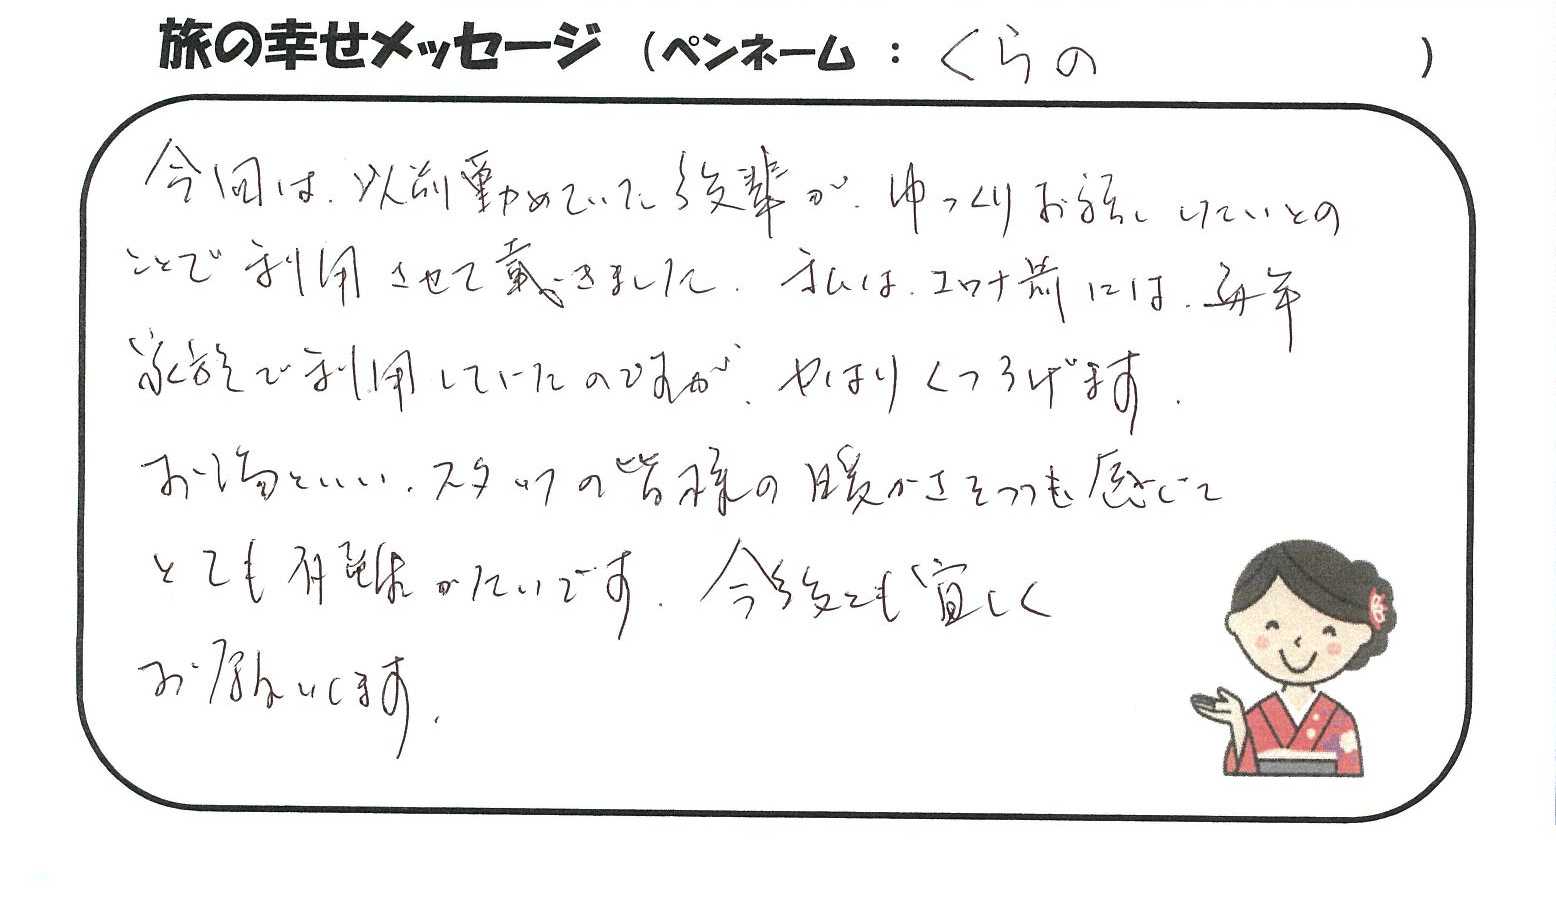 旅の幸せメッセージ (ペンネーム : くらの )
今回は、以前勤めていた後輩が、ゆっくりお話ししたいとの
ことで利用させて戴きました。私は、コロナ前には、毎年
家族で利用していたのですが、やはりくつろげます。
お湯といい、スタッフの皆様の暖かさそつも感じて
とても有難がたいです。今後とも宜しく
お願いします。